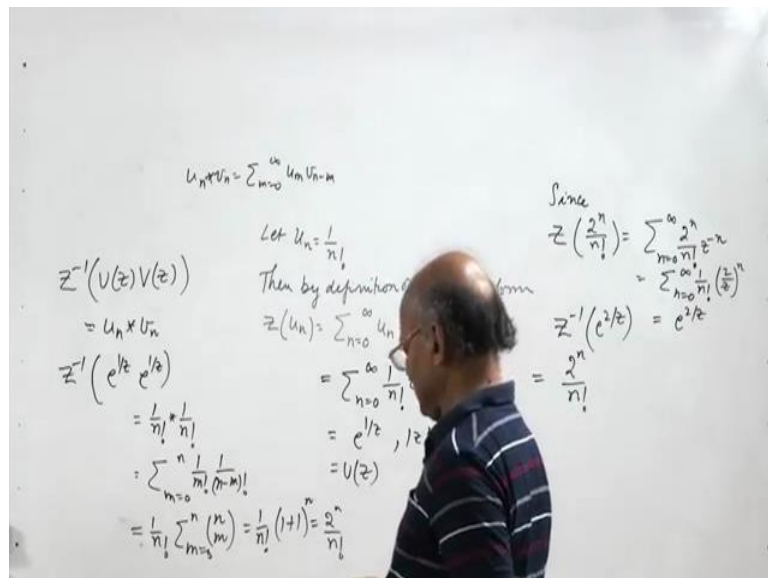 uₙ*vₙ = ∑_{m=0}^{∞} uₘ vₙ₋ₘ
Z⁻¹(U(z) V(z))
= uₙ * vₙ
Z⁻¹(e^{1/z} e^{1/z})
= 1/n! * 1/n!
= ∑_{m=0}^{n} 1/m! 1/(n-m)!
= 1/n! ∑_{m=0}^{n} (n m) = 1/n! (1+1)ⁿ = 2ⁿ/n!
Let uₙ = 1/n!
Then by definition
Z(uₙ) = ∑_{n=0}^{∞} uₙ
= ∑_{n=0}^{∞} 1/n!
= e^{1/z} , |z
= U(z)
Since
Z(2ⁿ/n!) = ∑_{n=0}^{∞} 2ⁿ/n! z⁻ⁿ
= ∑_{n=0}^{∞} 1/n! (2/z)ⁿ
= e^{2/z}
Z⁻¹(e^{2/z})
= 2ⁿ/n!